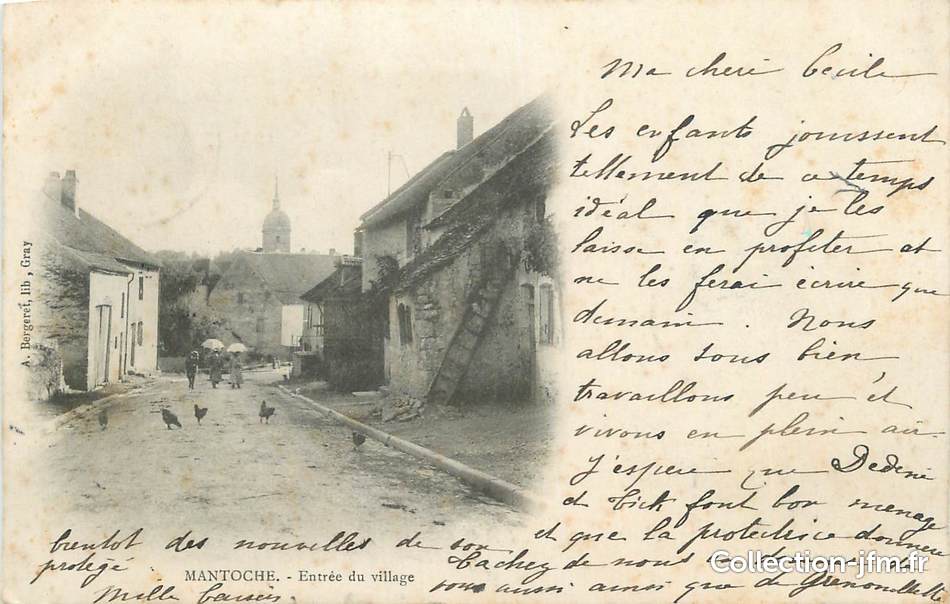 Ma cheri Cecile
Les enfants jouissent
tellement de ce temps
idéal que je les
laisse en profiter et
ne les ferai écrire que
demain. Nous
allons tous bien
travaillons peu et
vivons en plein air.
J'espère que Dedene
et Tick font bon menage
et que la protectrice donnera
bientot des nouvelles de son
protégé
Tachez de nous
vous aussi ainsi que de
Mille baisers
MANTOCHE. - Entrée du village
A. Bergeret, lib, Gray
Collection-jfm.fr